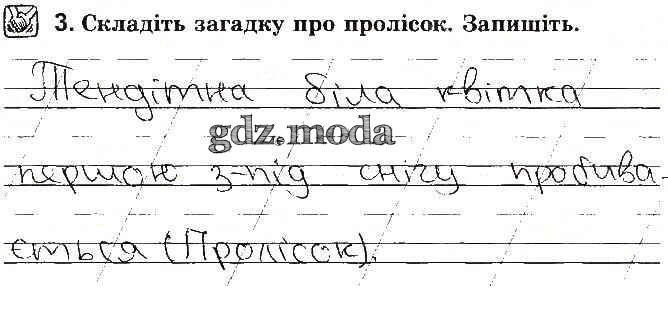 3. Складіть загадку про пролісок. Запишіть.
Тендітна біла квітка
gdz.moda
першою з-під снігу пробива-
ється (Пролісок).